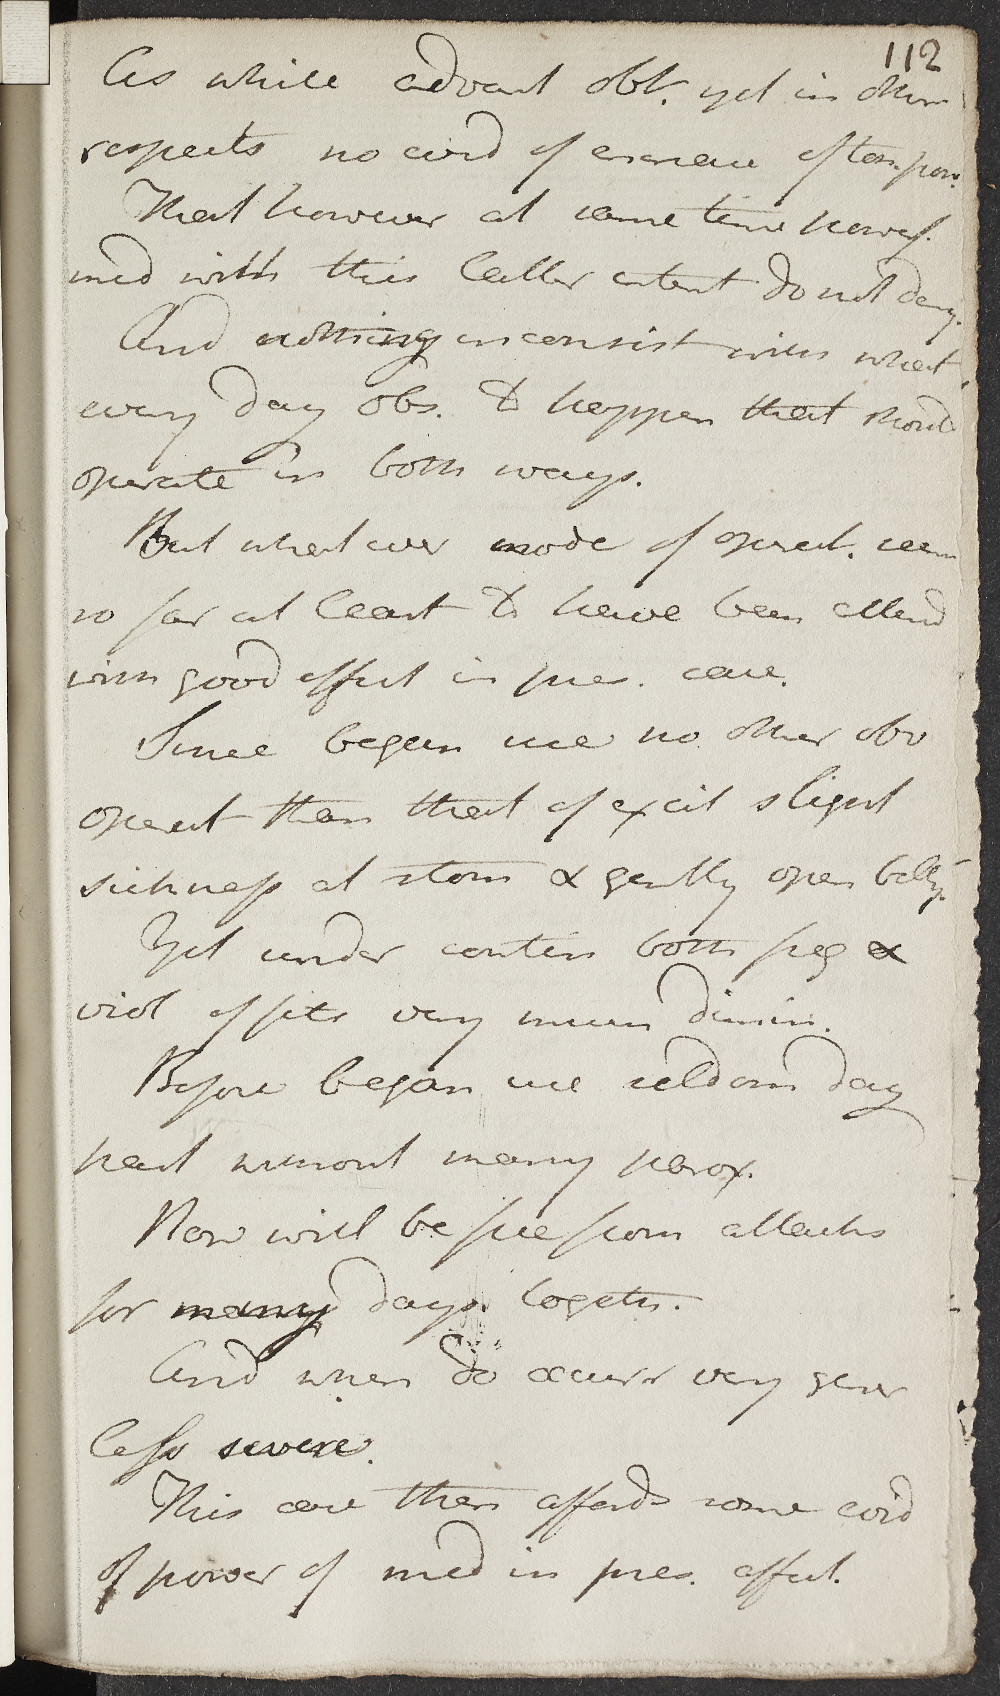 112
As while advant obt. yet in other
respects no evid of increase of ton. pow.
That however at same time powers.
med with this latter intent do not deny.
And nothing inconsist with what
every day obs. to happen that should
operate in both ways.
But whatever mode of operat. seem
so far at least to have been attend
with good effect in pres. case.
Since began use no other obv
operat than that of excit slight
sickness at stom & gently open belly.
Yet under contin both freq &
viol of fits very much dimin.
Before began use seldom day
past without many parox.
Now will be free from attacks
for many days togeth.
And when do occurr very gener
less severe.
This case then affords some evid
of power of med in pres. affect.